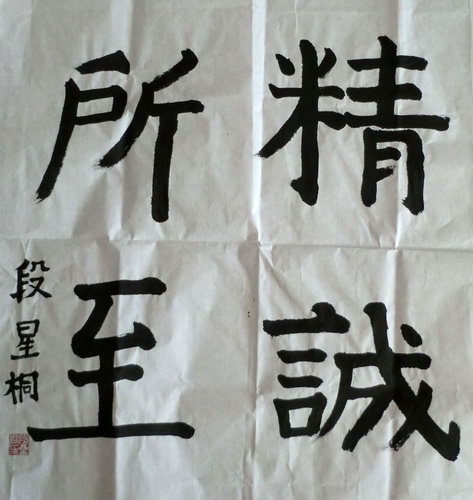 精誠
所至
段星桐